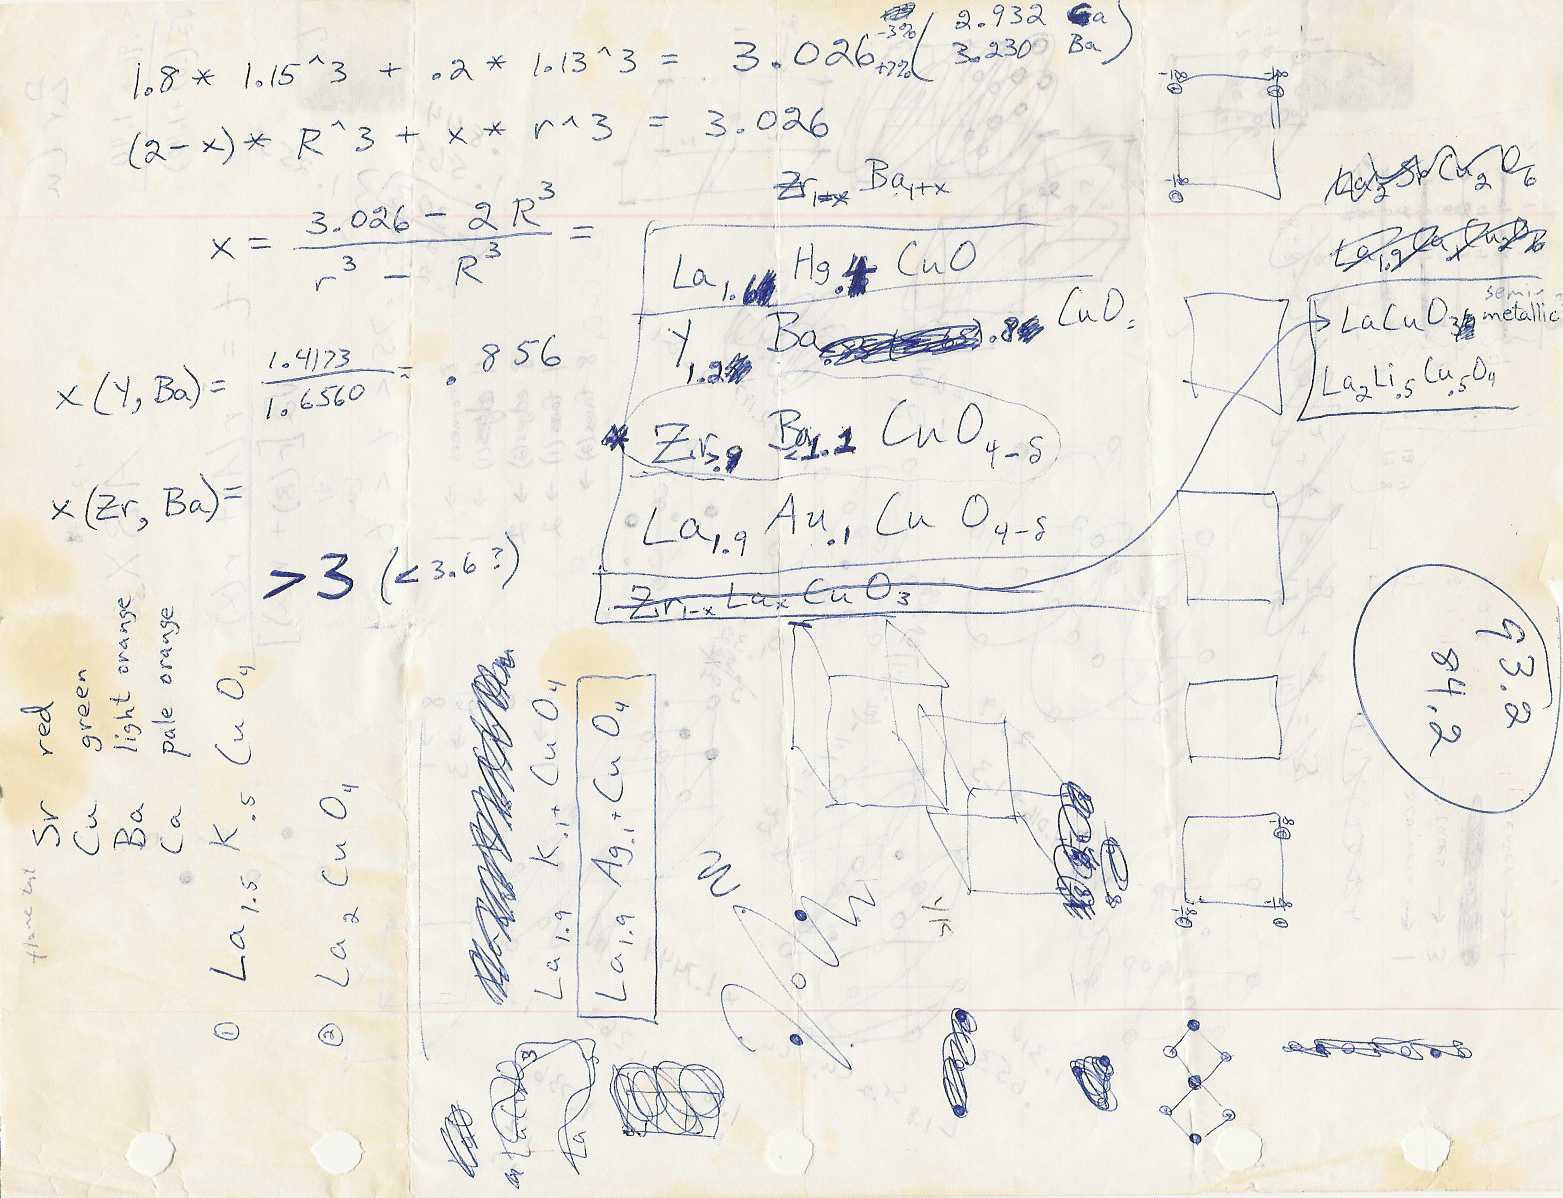 1.8 * 1.15^3 + .2 * 1.13^3 = 3.026 -3% +7% ( 2.932 Ca
3.230 Ba )
(2-x) * R^3 + x * r^3 = 3.026
x = 3.026 - 2R³ / r³ - R³ =
x(Y, Ba) = 1.4173 / 1.6560 = .856
x(Zr, Ba) =
>3 (<3.6?)
Zr1-x Ba1+x
La1.6 Hg.4 CuO
Y1.2 Ba.8 CuO
* Zr>.9 Ba<1.1 CuO4-δ
La1.9 Au.1 CuO4-δ
Zr1-x Lax CuO3
La1.9 Ca.1 Cu2O6
LaCuO3 semi-metallic
La2Li.5Cu.5O4
93.2
84.2
flame test
Sr red
Cu green
Ba light orange
Ca pale orange
① La1.5 K.5 CuO4
② La2 CuO4
La1.9 K.1+ CuO4
La1.9 Ag.1+ CuO4
1/8
1/8
1/8
1/8
1/8
1/8